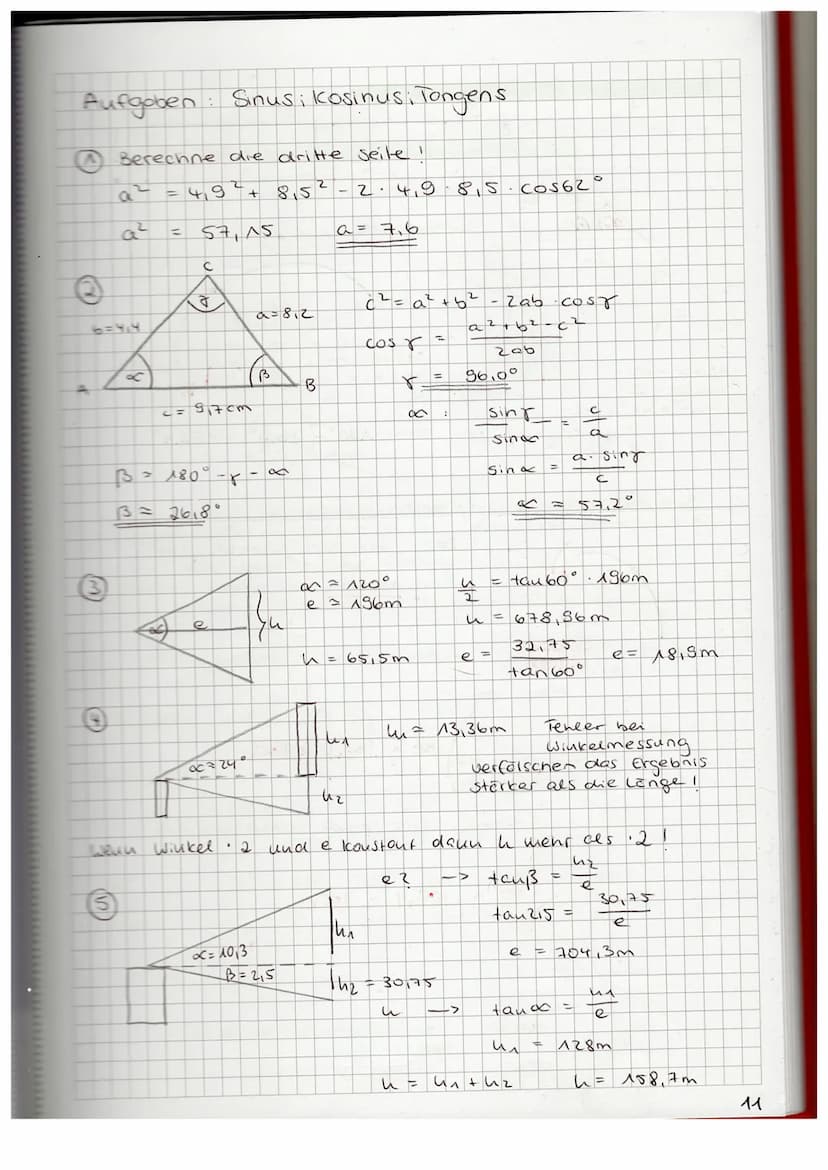 Aufgaben: Sinus; Kosinus; Tangens
① Berechne die dritte Seite!
a² = 4,9² + 8,5² - 2 · 4,9 · 8,5 · cos62°
a² = 57,15 a = 7,6
②
C
γ
b=4,4
a=8,2
A
α
β
B
c = 9,7cm
c² = a² + b² - 2ab · cosγ
cosγ = (a² + b² - c²)/2ab
γ = 96,0°
α : sinγ/sinα = c/a
sinα = (a · sinγ)/c
α = 57,2°
β = 180° - γ - α
β = 26,8°
③
α
e
h
α = 120°
e = 196m
h = 65,5m
h/2 = tan60° · 196m
h = 678,96m
e = 32,75/tan60° e = 18,9m
④
α=24°
h₁
h₂
h₁ = 13,36m
Fehler bei
Winkelmessung
verfälschen das Ergebnis
stärker als die Länge!
Wenn Winkel · 2 und e konstant dann h mehr als · 2!
⑤
α=10,3
β=2,5
h₁
h₂ = 30,75
e? -> tanβ = h₂/e
tan2,5 = 30,75/e
e = 704,3m
h -> tanα = h₁/e
h₁ = 128m
h = h₁ + h₂ h = 158,7m
11